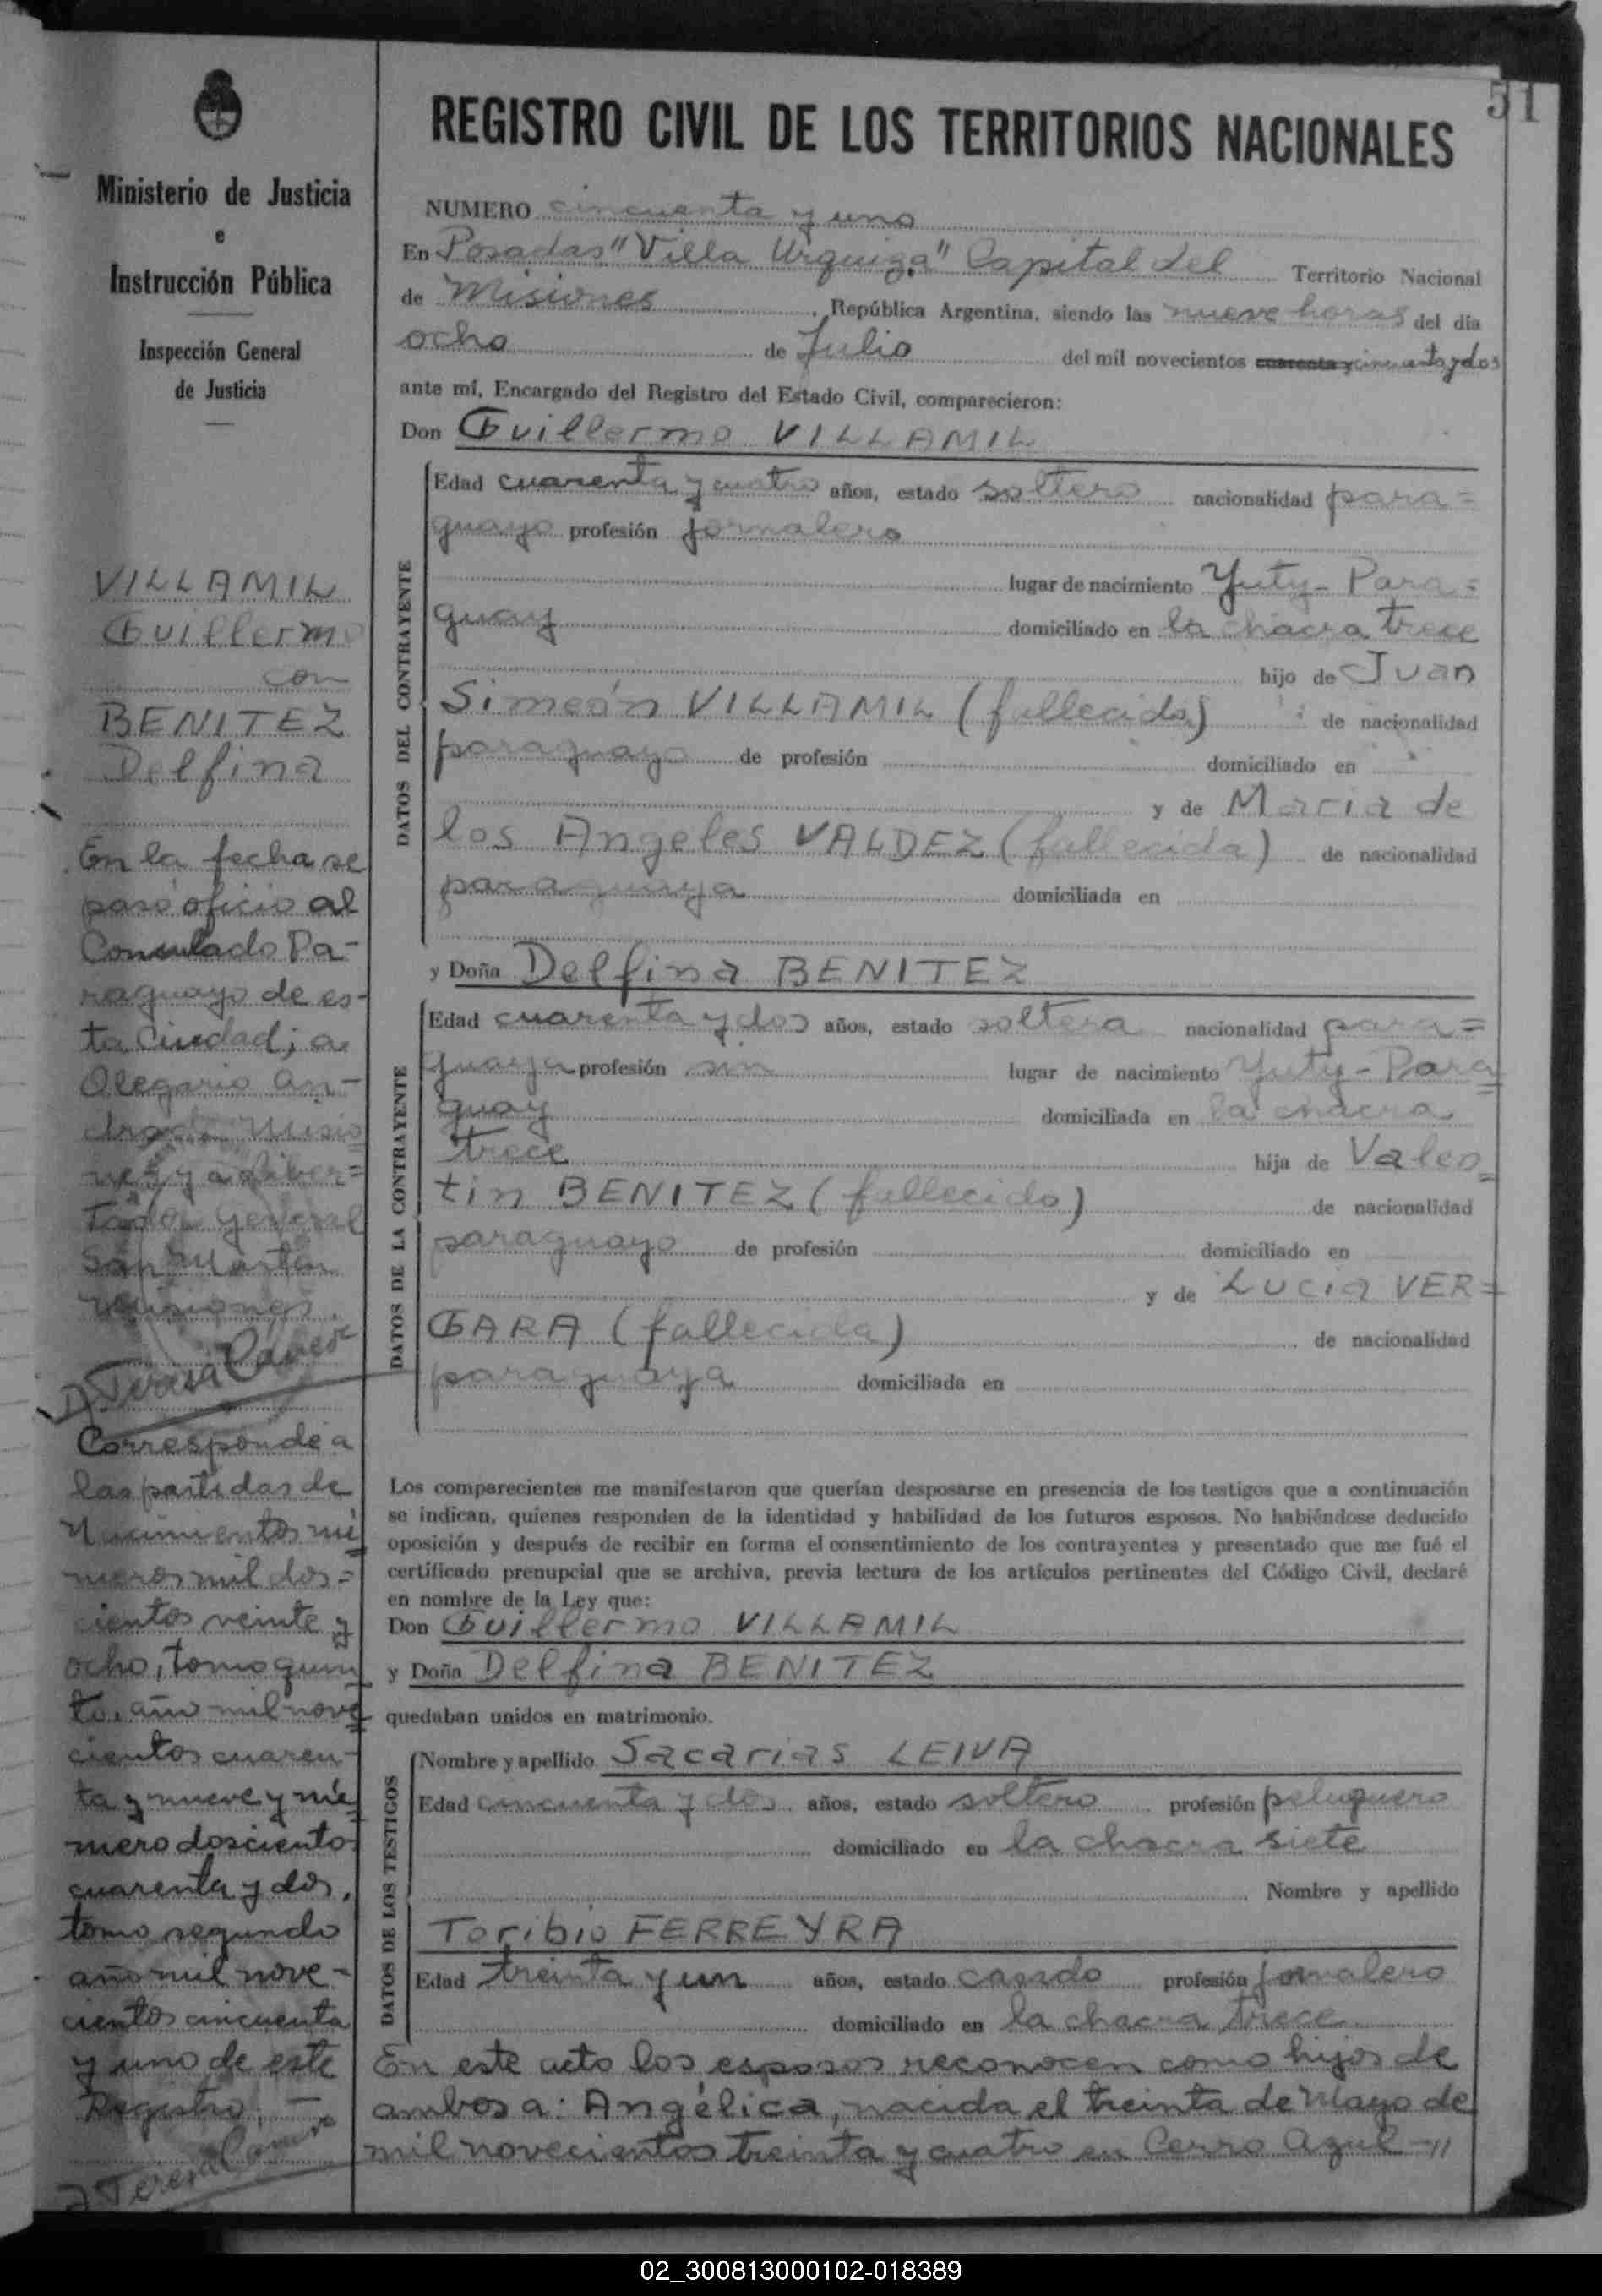 51
Ministerio de Justicia
e
Instrucción Pública
Inspección General
de Justicia
VILLAMIL
Guillermo
con
BENITEZ
Delfina
En la fecha se
pasó oficio al
Consulado Pa-
raguayo de es-
ta Ciudad; a
Olegario An-
drade Misio
nes y a Liber=
tador General
San Martín
Misiones.
Corresponde a
las partidas de
Nacimientos nú
meros mil dos=
cientos veinte y
ocho, tomo quin
to, año mil nove
cientos cuaren-
ta y nueve y nú
mero doscientos
cuarenta y dos,
tomo segundo
año mil nove-
cientos cincuenta
y uno de este
Registro.
REGISTRO CIVIL DE LOS TERRITORIOS NACIONALES
NUMERO cincuenta y uno
En Posadas "Villa Urquiza" Capital del Territorio Nacional
de Misiones, República Argentina, siendo las nueve horas del día
ocho de Julio del mil novecientos cuarenta y cincuenta y dos
ante mí, Encargado del Registro del Estado Civil, comparecieron:
Don Guillermo VILLAMIL
DATOS DEL CONTRAYENTE
Edad cuarenta y cuatro años, estado soltero nacionalidad para=
guayo profesión jornalero
lugar de nacimiento Yuty- Para=
guay domiciliado en la chacra trece
hijo de Juan
Simeón VILLAMIL (fallecido) de nacionalidad
paraguayo de profesión domiciliado en
y de María de
los Angeles VALDEZ (fallecida) de nacionalidad
paraguaya domiciliada en
y Doña Delfina BENITEZ
DATOS DE LA CONTRAYENTE
Edad cuarenta y dos años, estado soltera nacionalidad para=
guaya profesión sin lugar de nacimiento Yuty- Para
guay domiciliada en la chacra
trece hija de Valen=
tin BENITEZ (fallecido) de nacionalidad
paraguayo de profesión domiciliado en
y de Lucia VER=
GARA (fallecida) de nacionalidad
paraguaya domiciliada en
Los comparecientes me manifestaron que querían desposarse en presencia de los testigos que a continuación
se indican, quienes responden de la identidad y habilidad de los futuros esposos. No habiéndose deducido
oposición y después de recibir en forma el consentimiento de los contrayentes y presentado que me fué el
certificado prenupcial que se archiva, previa lectura de los artículos pertinentes del Código Civil, declaré
en nombre de la Ley que:
Don Guillermo VILLAMIL
y Doña Delfina BENITEZ
quedaban unidos en matrimonio.
DATOS DE LOS TESTIGOS
Nombre y apellido Sacarias LEIVA
Edad cincuenta y dos años, estado soltero profesión peluquero
domiciliado en la chacra siete
Nombre y apellido
Toribio FERREYRA
Edad treinta y un años, estado casado profesión jornalero
domiciliado en la chacra trece
En este acto los esposos reconocen como hijos de
ambos a: Angélica, nacida el treinta de Mayo de
mil novecientos treinta y cuatro en Cerro Azul -"
02_300813000102-018389